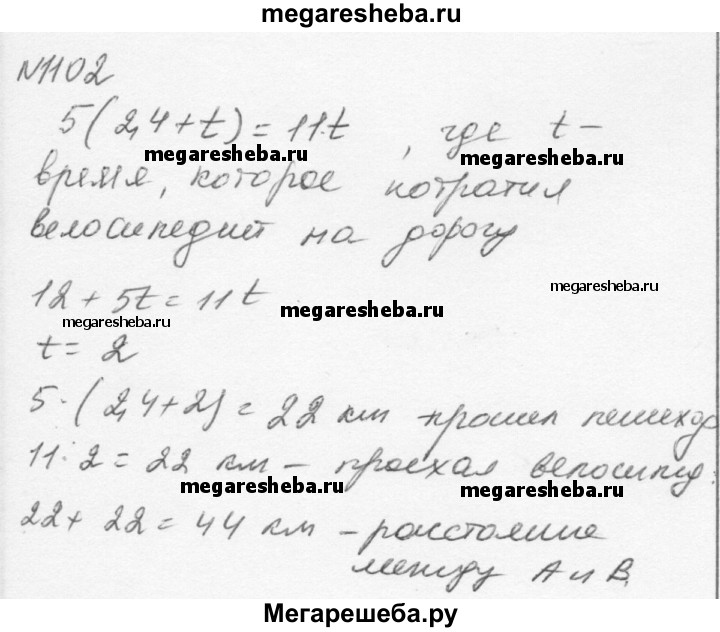 megaresheba.ru
N1102
5(2,4+t)=11·t, где t-
megaresheba.ru megaresheba.ru
время, которое потратил
велосипедист на дорогу
12+5t=11t
megaresheba.ru megaresheba.ru megaresheba.ru
t=2
5·(2,4+2)=22 км -прошел пешеход
11·2=22 км - проехал велосипед.
megaresheba.ru megaresheba.ru
22+22=44 км -расстояние
между А и В.
Мегарешеба.ру